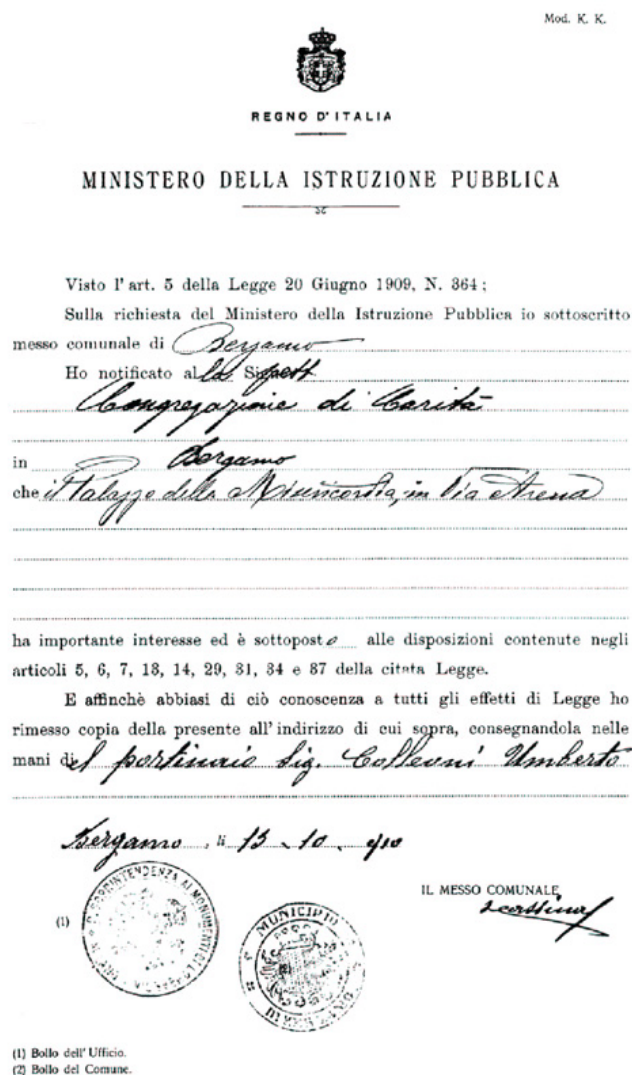 Mod. K. K.
REGNO D'ITALIA
MINISTERO DELLA ISTRUZIONE PUBBLICA
Visto l'art. 5 della Legge 20 Giugno 1909, N. 364;
Sulla richiesta del Ministero della Istruzione Pubblica io sottoscritto
messo comunale di Bergamo
Ho notificato alla Sig
Congregazione di Carità
in Bergamo
che il Palazzo della Misericordia, in Via Arena
ha importante interesse ed è sottoposto alle disposizioni contenute negli
articoli 5, 6, 7, 13, 14, 29, 31, 34 e 37 della citata Legge.
E affinchè abbiasi di ciò conoscenza a tutti gli effetti di Legge ho
rimesso copia della presente all'indirizzo di cui sopra, consegnandola nelle
mani del portinaio Sig. Colleoni Umberto
Bergamo, li 13-10-910
IL MESSO COMUNALE
(1)
MUNICIPIO DI BERGAMO
(1) Bollo dell'Ufficio.
(2) Bollo del Comune.